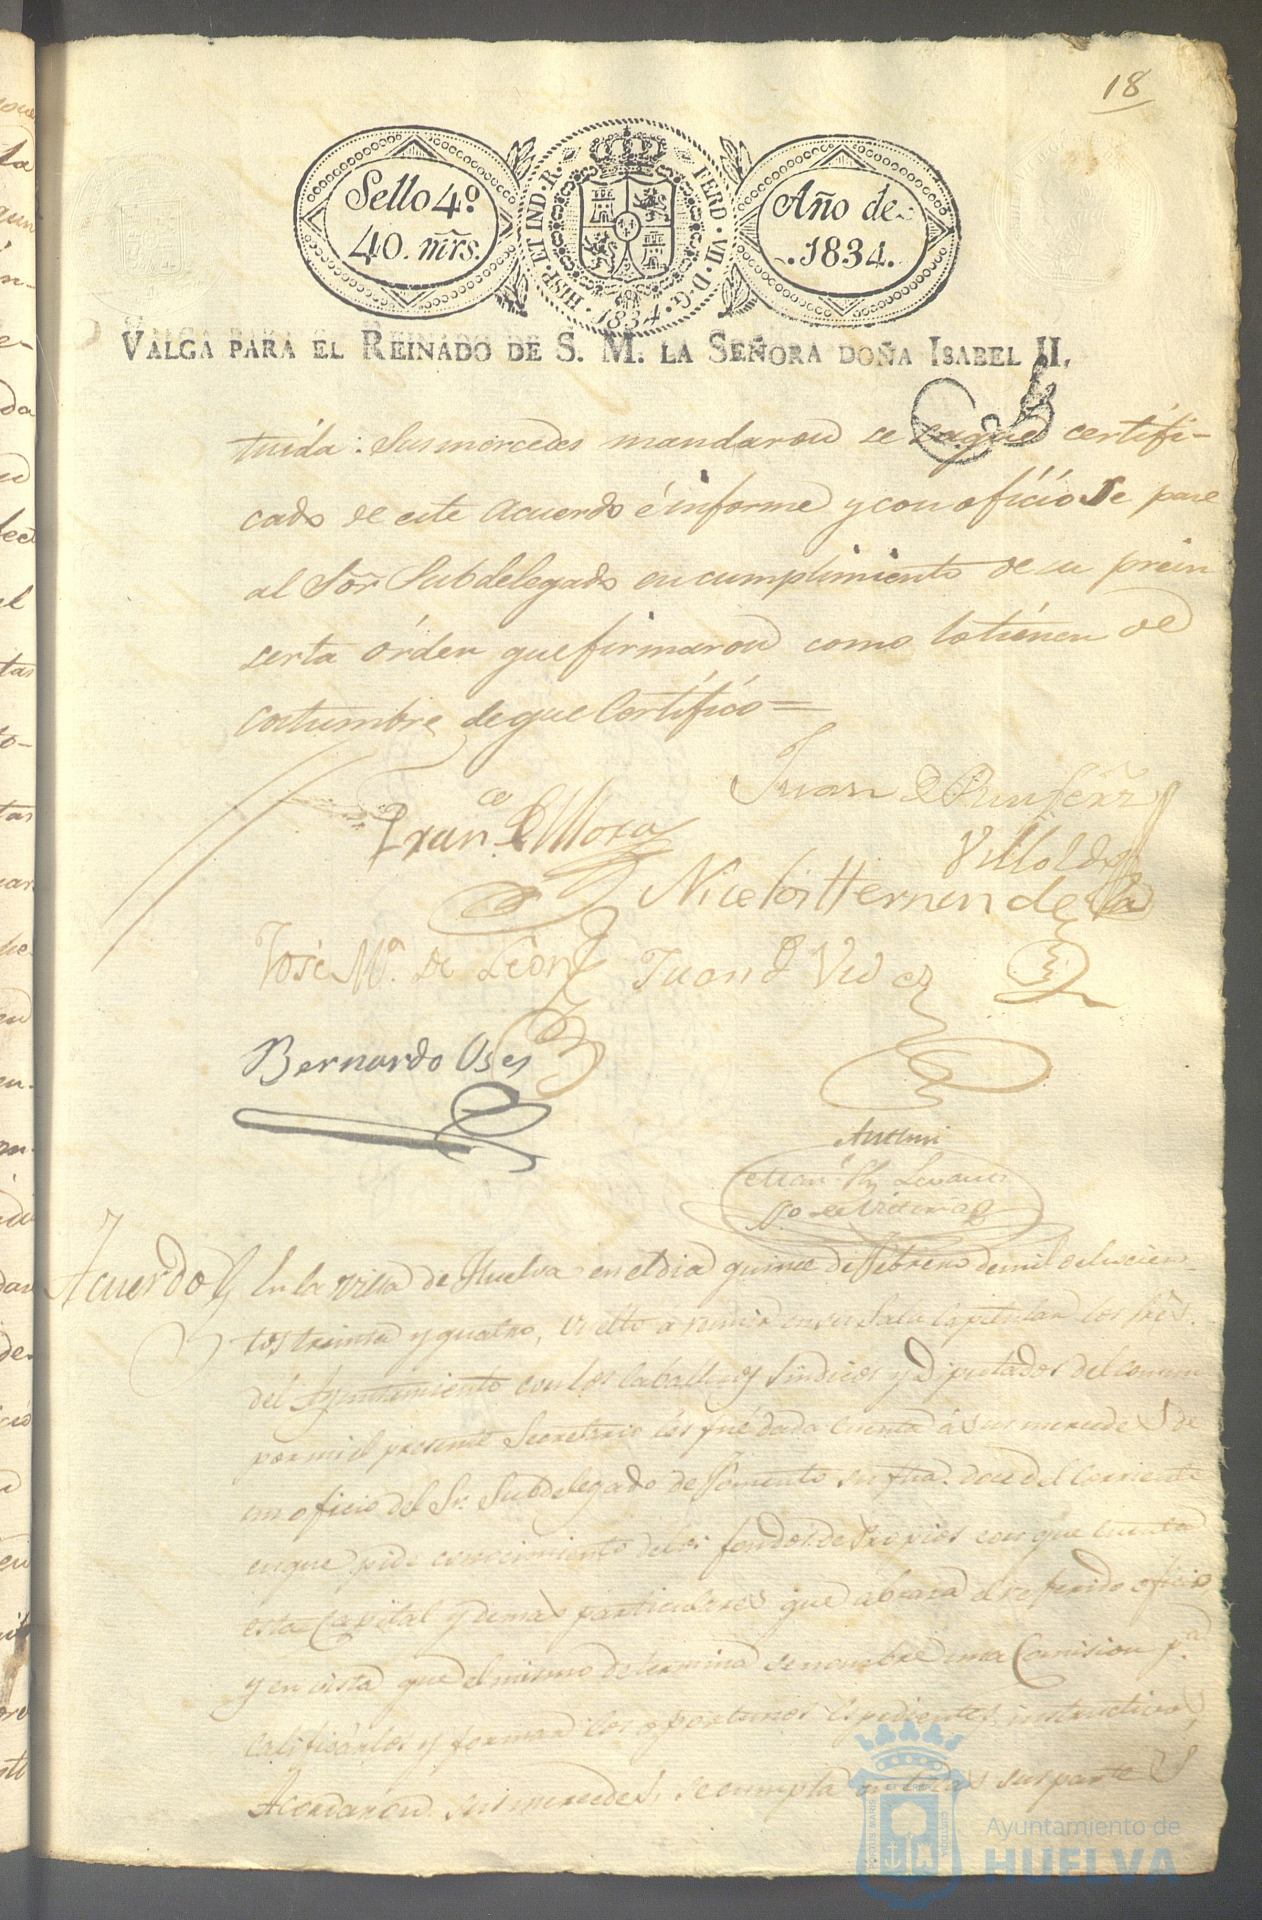 18
Sello 4º
40. mrs.
HISP. ET IND. R. FERD. VII. D. G. 1834.
Año de
1834.
VALGA PARA EL REINADO DE S. M. LA SEÑORA DOÑA ISABEL II.
tuida: Sus mercedes mandaron se saque certifi-
cado de este Acuerdo é informe y con oficio se pase
al Sor. Subdelegado en cumplimiento de su prein
serta órden que firmaron como lo tienen de
costumbre de que Certífico=
Juan
Franco. de Mora
Villoldo
Hernandez
José Ma. de Leon
Juan
Bernardo Uses
Ante mi
Acuerdo En la Villa de Huelva en el dia quince de Febrero de mil ochocien
tos treinta y quatro, vuelto á reunir en su Sala Capitular los Sres.
del Ayuntamiento con los Caballeros Síndicos y Diputados del comun
por mi el presente Secretario les fué dada cuenta á sus mercedes de
un oficio del Sr. Subdelegado de Fomento su fha. doce del Corriente
en que pide conocimiento de los fondos de Propios con que cuenta
esta Capital y demas particulares que abraza el referido oficio
y en vista que el mismo determina se nombre una Comision pa.
calificarlos y formar los oportunos espedientes instructivos,
Acordaron sus mercedes, se cumpla en todas sus partes
PORTUS MARIS CUSTODIA
Ayuntamiento de
HUELVA